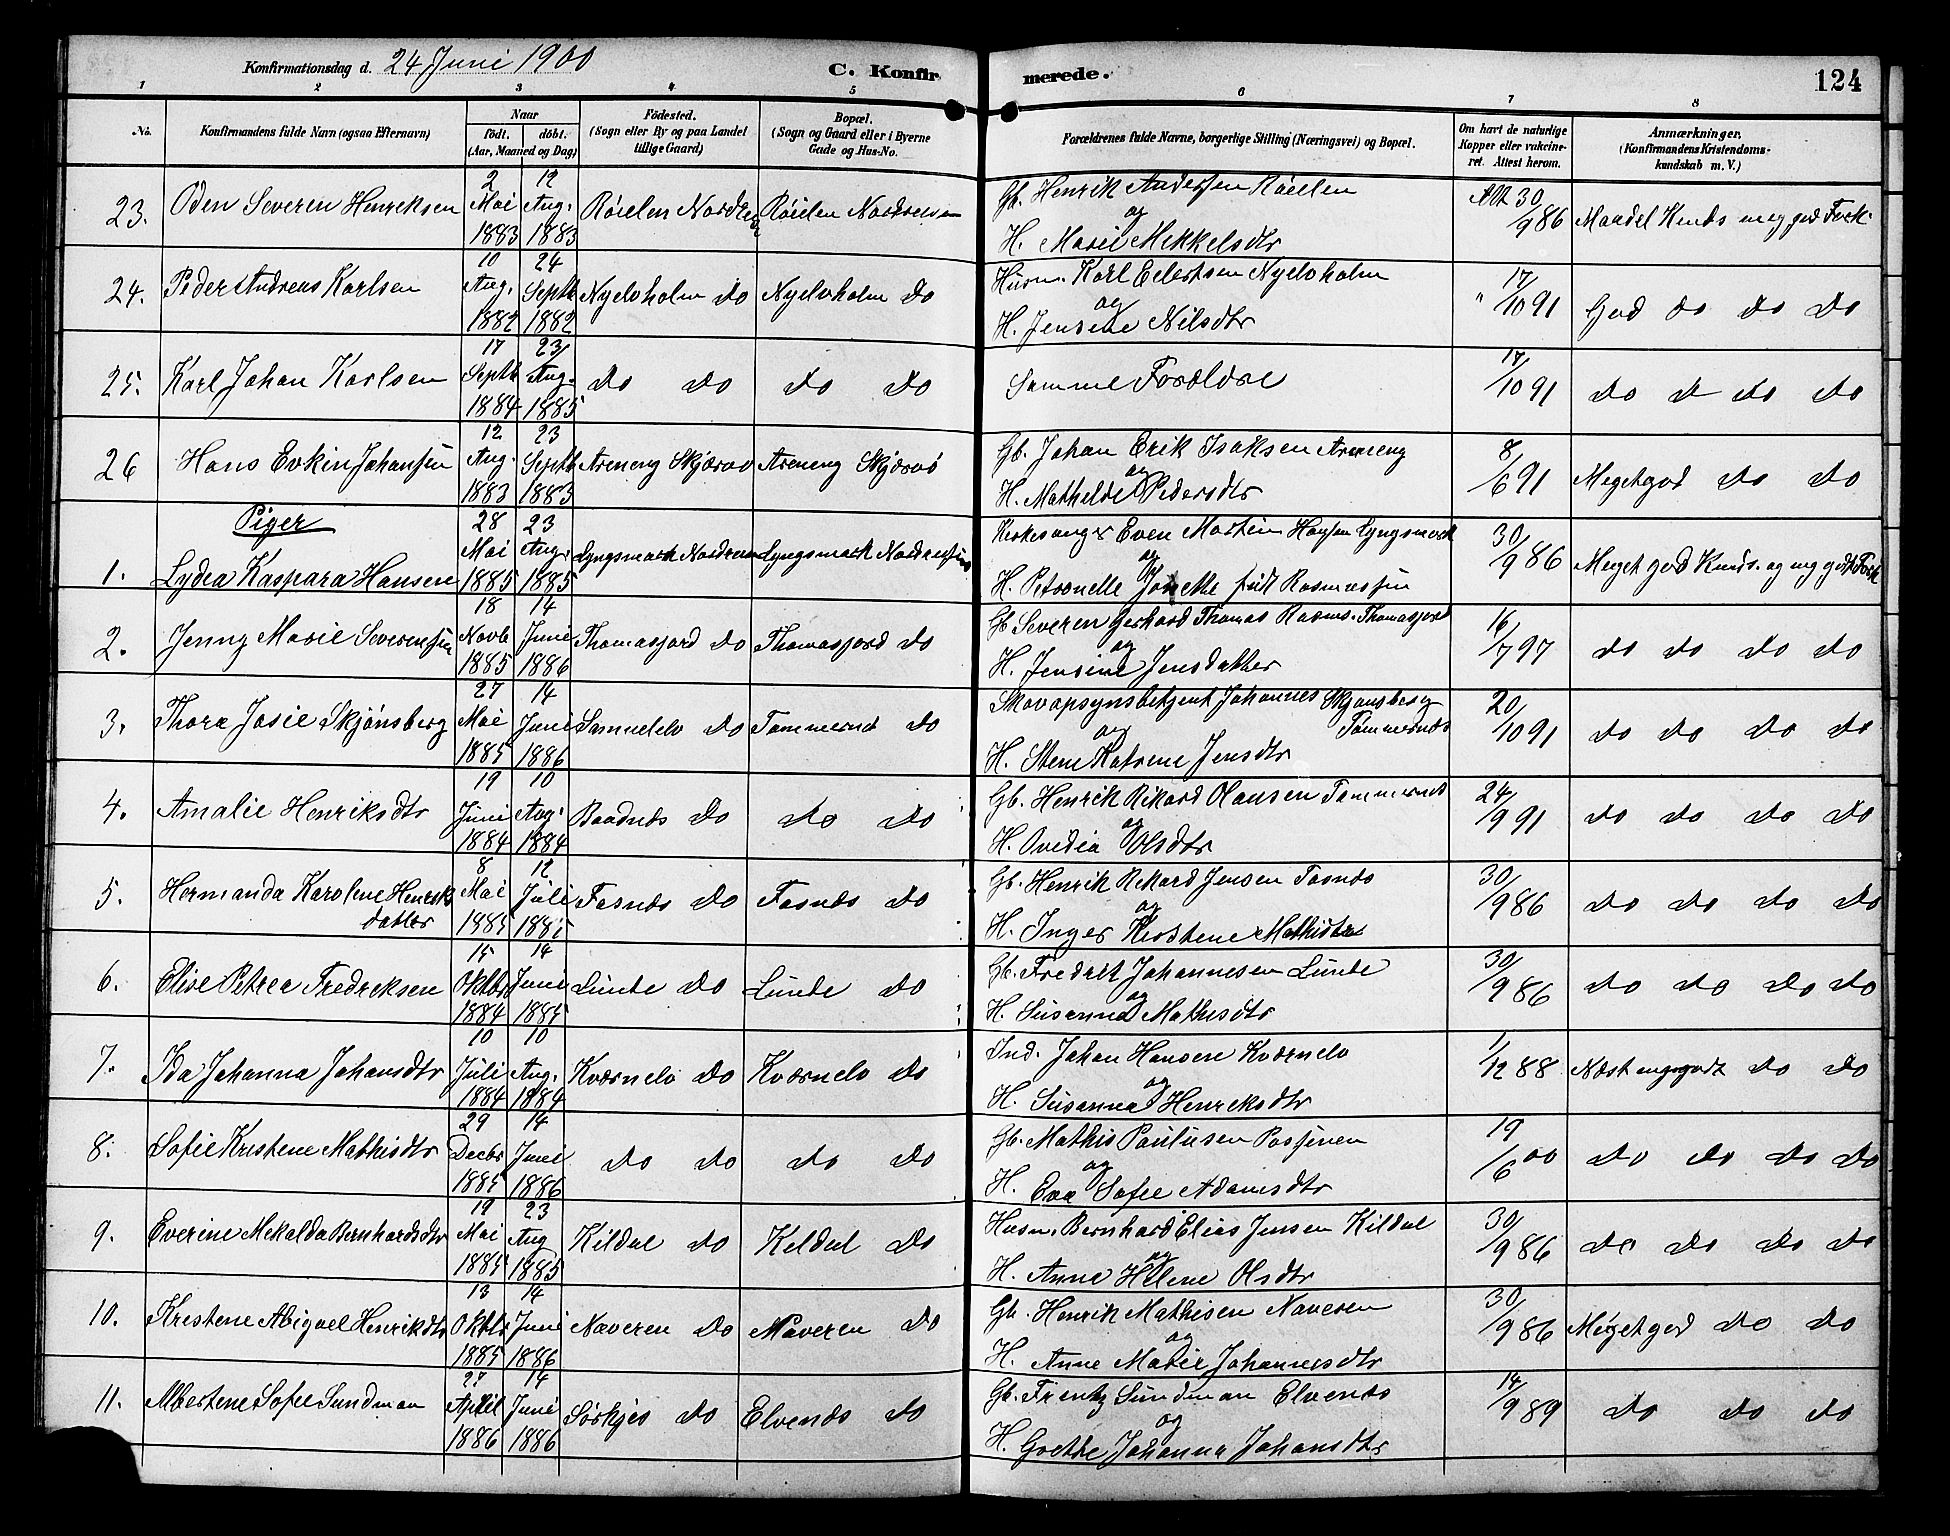 Konfirmationsdag d. 24 Juni 1900
C. Konfirmerede.
124
1 2 3 4 5 6 7 8
No.
Konfirmandens fulde Navn (ogsaa Efternavn)
Naar
födt. döbt.
(Aar, Maaned og Dag)
Födested.
(Sogn eller By og paa Landet
tillige Gaard)
Bopæl.
(Sogn og Gaard eller i Byerne
Gade og Hus-No.
Forældrenes fulde Navne, borgerlige Stilling (Næringsvei) og Bopæl.
Om havt de naturlige
Kopper eller vakcine-
ret. Attest herom.
Anmærkninger,
(Konfirmandens Kristendoms-
kundskab m. V.)
23. Oden Severin Henriksen 2 Mai 1883 12 Aug. 1883 Röielen Röielen Gb. Henrik Andersen Röielen
og
H. Marie Mikkelsdtr Att 30/9 86
24. Peder Andreas Karlsen 10 Aug. 1882 24 Septb 1882 Nyelvholm do Nyelvholm do Husm. Karl Nyelvholm
og
H. Jensine Nilsdtr " 17/10 91 God do do do
25. Karl Johan Karlsen 17 Septb 1884 23/ Aug. 1885 do do do do Samme Forældre 17/10 91 do do do do
26 Hans Johansen 12 Aug. 1883 23 Septb 1883 Skjærvö Skjærvö Gb. Johan Erik Isaksen
og
H. Mathilde Pedersdtr 8/6 91 Meget god do do
Piger
1. Lydia Kaspara Hansen 28 Mai 1885 23 Aug. 1885 Lyngsmark Lyngsmark Kirkesanger Even Martin Hansen Lyngsmark
og
H. Petronelle födt Rasmussen 30/9 86 Meget god Kunds. og
2. Jenny Marie Severinsen 18 Novb 1885 14 Juni 1886 Thomasjord do Thomasjord do Gb Severin Gerhard Thomas Rasms. Thomasjord
og
H. Jensine Jensdatter 16/7 97 do do do do
3. Thora Josie Skjönsberg 27 Mai 1885 14 Juni 1886 Samuelelv do Tömmernes do Skovopsynsbetjent Johannes Skjönsberg
Tömmernes
og
H. Stine Katrine Jensdtr 20/10 91 do do do do
4. Amalie Henriksdtr 19 Juni 1884 10 Aug. 1884 Baadnes do do do Gb. Henrik Rikard Olausen Tömmernes
og
H. Ovedia Olsdtr 24/9 91 do do do do
5. Hermanda Karoline Henriks
datter 8 Mai 1885 12 Juli 1885 Fosnes do Fosnes do Gb. Henrik Rikard Jensen Fosnes
og
H. Inger Kirstine Mathisdtr 30/9 86 do do do do
6. Elise Petrea Fredriksen 15 Oktbr 1884 14 Juni 1885 Lunde do Lunde do Gb. Fredrik Johannesen Lunde
og
H. Susanna Mathisdtr 30/9 86 do do do do
7. Ida Johanna Johansdtr 10 Juli 1884 10 Aug. 1884 Kværnelv do Kværnelv do Ind. Johan Hansen Kværnelv
og
H. Susanna Henriksdtr 1/12 88 Næst do do
8. Sofie Kristine Mathisdtr 29 Decbr 1885 14 Juni 1886 do do do do Gb. Mathis Paulusen
og
H. Eva Sofie Adamsdtr 19/6 00 do do do do
9. Everine Mekalda Bernhardsdtr 19 Mai 1885 23 Aug 1885 Kildal do Kildal do Husm. Bernhard Elias Jensen Kildal
og
H. Anne Helene Olsdtr 30/9 86 do do do do
10. Kristine Abigael Henriksdtr 13 Oktbr 1885 14 Juni 1886 Naveren do Naveren do Gb. Henrik Mathisen Naveren
og
H. Anne Marie Johannesdtr 30/9 86 Meget god do do
11. Albertine Sofie Sundman 27 April 1886 14 Juni 1886 Sörkjos do Elvenes do Gb. Frentz Sundman Elvenes
og
H. Grethe Johanna Johansdtr 14/9 89 do do do